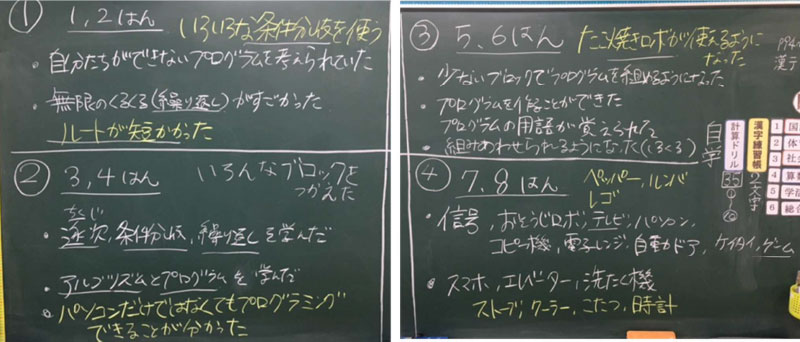 ① 1,2はん いろいろな条件分岐を使う
・自分たちができないプログラムを考えられていた
・無限のくるくる(繰り返し)がすごかった
ルートが短かかった
② 3,4はん いろんなブロックを
つかえた
ちくじ
・逐次,条件分岐,繰り返しを学んだ
・アルゴリズムとプログラムを学んだ
・パソコンだけではなくてもプログラミング
できることが分かった
③ 5、6はん たこ焼きロボが使えるように
なった
・少ないブロックでプログラムを組めるようになった
・プログラムを作ることができた
プログラムの用語が覚えられた
・組みあわせられるようになった(くるくる)
④ 7,8はん ペッパー,ルンバ
レゴ
・信号,おそうじロボ,テレビ,パソコン,
コピー機,電子レンジ,自動ドア,ケイタイ,ゲーム
・スマホ,エレベーター,洗たく機
ストーブ,クーラー,こたつ,時計
漢字
自学
計算ドリル
35
漢字練習帳
1 国
2 体
3 社
4 算
5 学
6 総